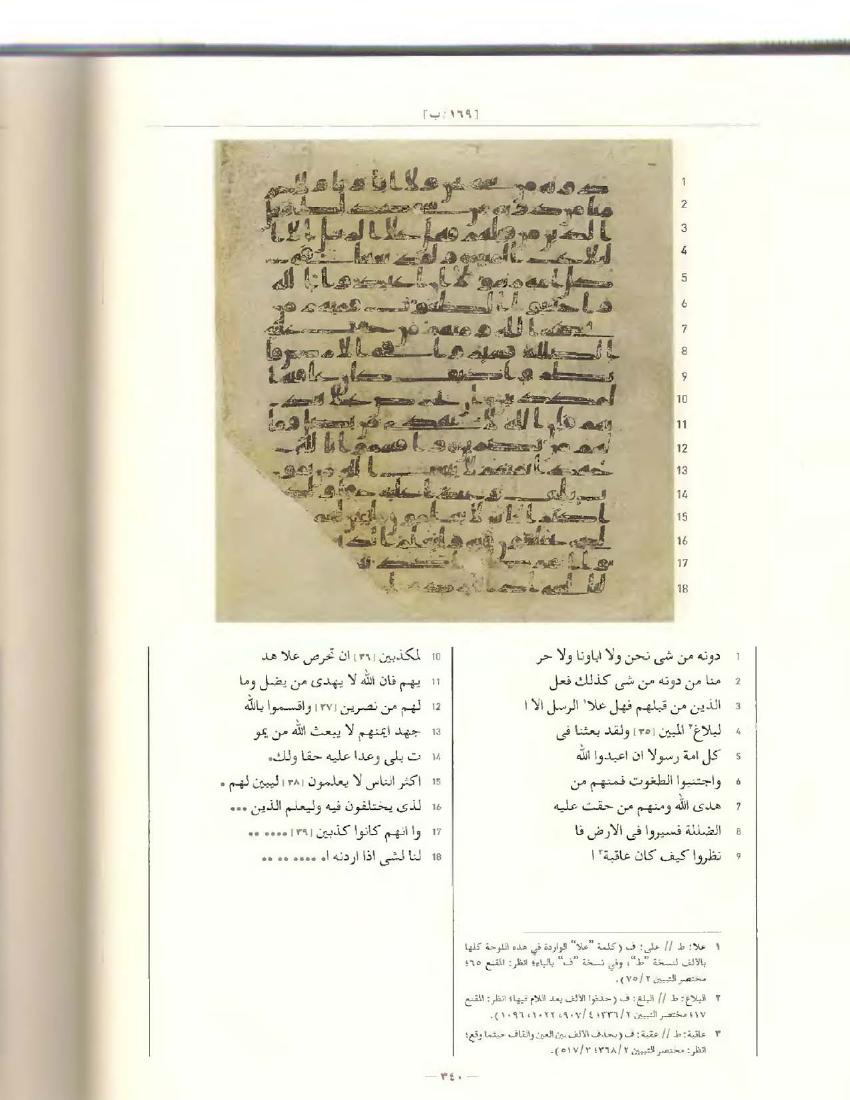 [١٦٩/ب]
1
2
3
4
5
6
7
8
9
10
11
12
13
14
15
16
17
18
1 دونه من شى نحن ولا اباونا ولا حر
2 منا من دونه من شى كذلك فعل
3 الذين من قبلهم فهل علا١ الرسل الا ا
4 لبلاغ٢ المبين [٣٥] ولقد بعثنا فى
5 كل امة رسولا ان اعبدوا الله
6 واجتنبوا الطغوت فمنهم من
7 هدى الله ومنهم من حقت عليه
8 الضللة فسيروا فى الارض فا
9 نظروا كيف كان عاقبة٣ ا
10 لمكذبين [٣٦] ان تحرص علا هد
11 يهم فان الله لا يهدى من يضل وما
12 لهم من نصرين [٣٧] واقسموا بالله
13 جهد ايمنهم لا يبعث الله من يمو
14 ت بلى وعدا عليه حقا ولك*
15 اكثر الناس لا يعلمون [٣٨] ليبين لهم *
16 لذى يختلفون فيه وليعلم الذين ***
17 وا انهم كانوا كذبين [٣٩] **** **
18 لنا لشى اذا اردنه ا* **** ** **
١ علا: ط // على: ف (كلمة "علا" الواردة في هذه اللوحة كلها
بالألف لنسخة "ط"، وفي نسخة "ف" بالياء؛ انظر: المقنع ٦٥؛
مختصر التبيين ٧٥/٢).
٢ البلاغ: ط // البلغ: ف (حذفوا الألف بعد اللام فيها؛ انظر: المقنع
١٧؛ مختصر التبيين
٣ عاقبة: ط // عقبة: ف (بحذف الألف بين العين والقاف حيثما وقع؛
انظر: مختصر التبيين ٣٦٨/٢؛ ٥١٧/٣).
— ٣٤٠ —